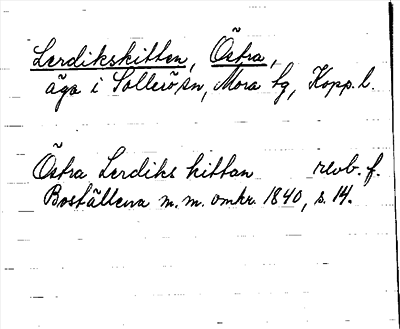 Lerdikskitten, Östra,
äga i Sollerö sn, Mora tg, Kopp. l.
Östra Lerdiks kittan revb. f.
Boställena m. m. omkr. 1840, s. 14.